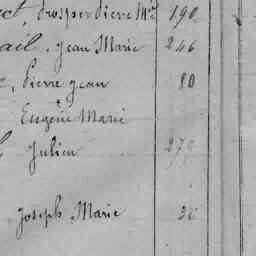 Prosper Pierre Mie 190
ail, Jean Marie 246
Pierre Jean 80
Eugène Marie
Julien 279
Joseph Marie